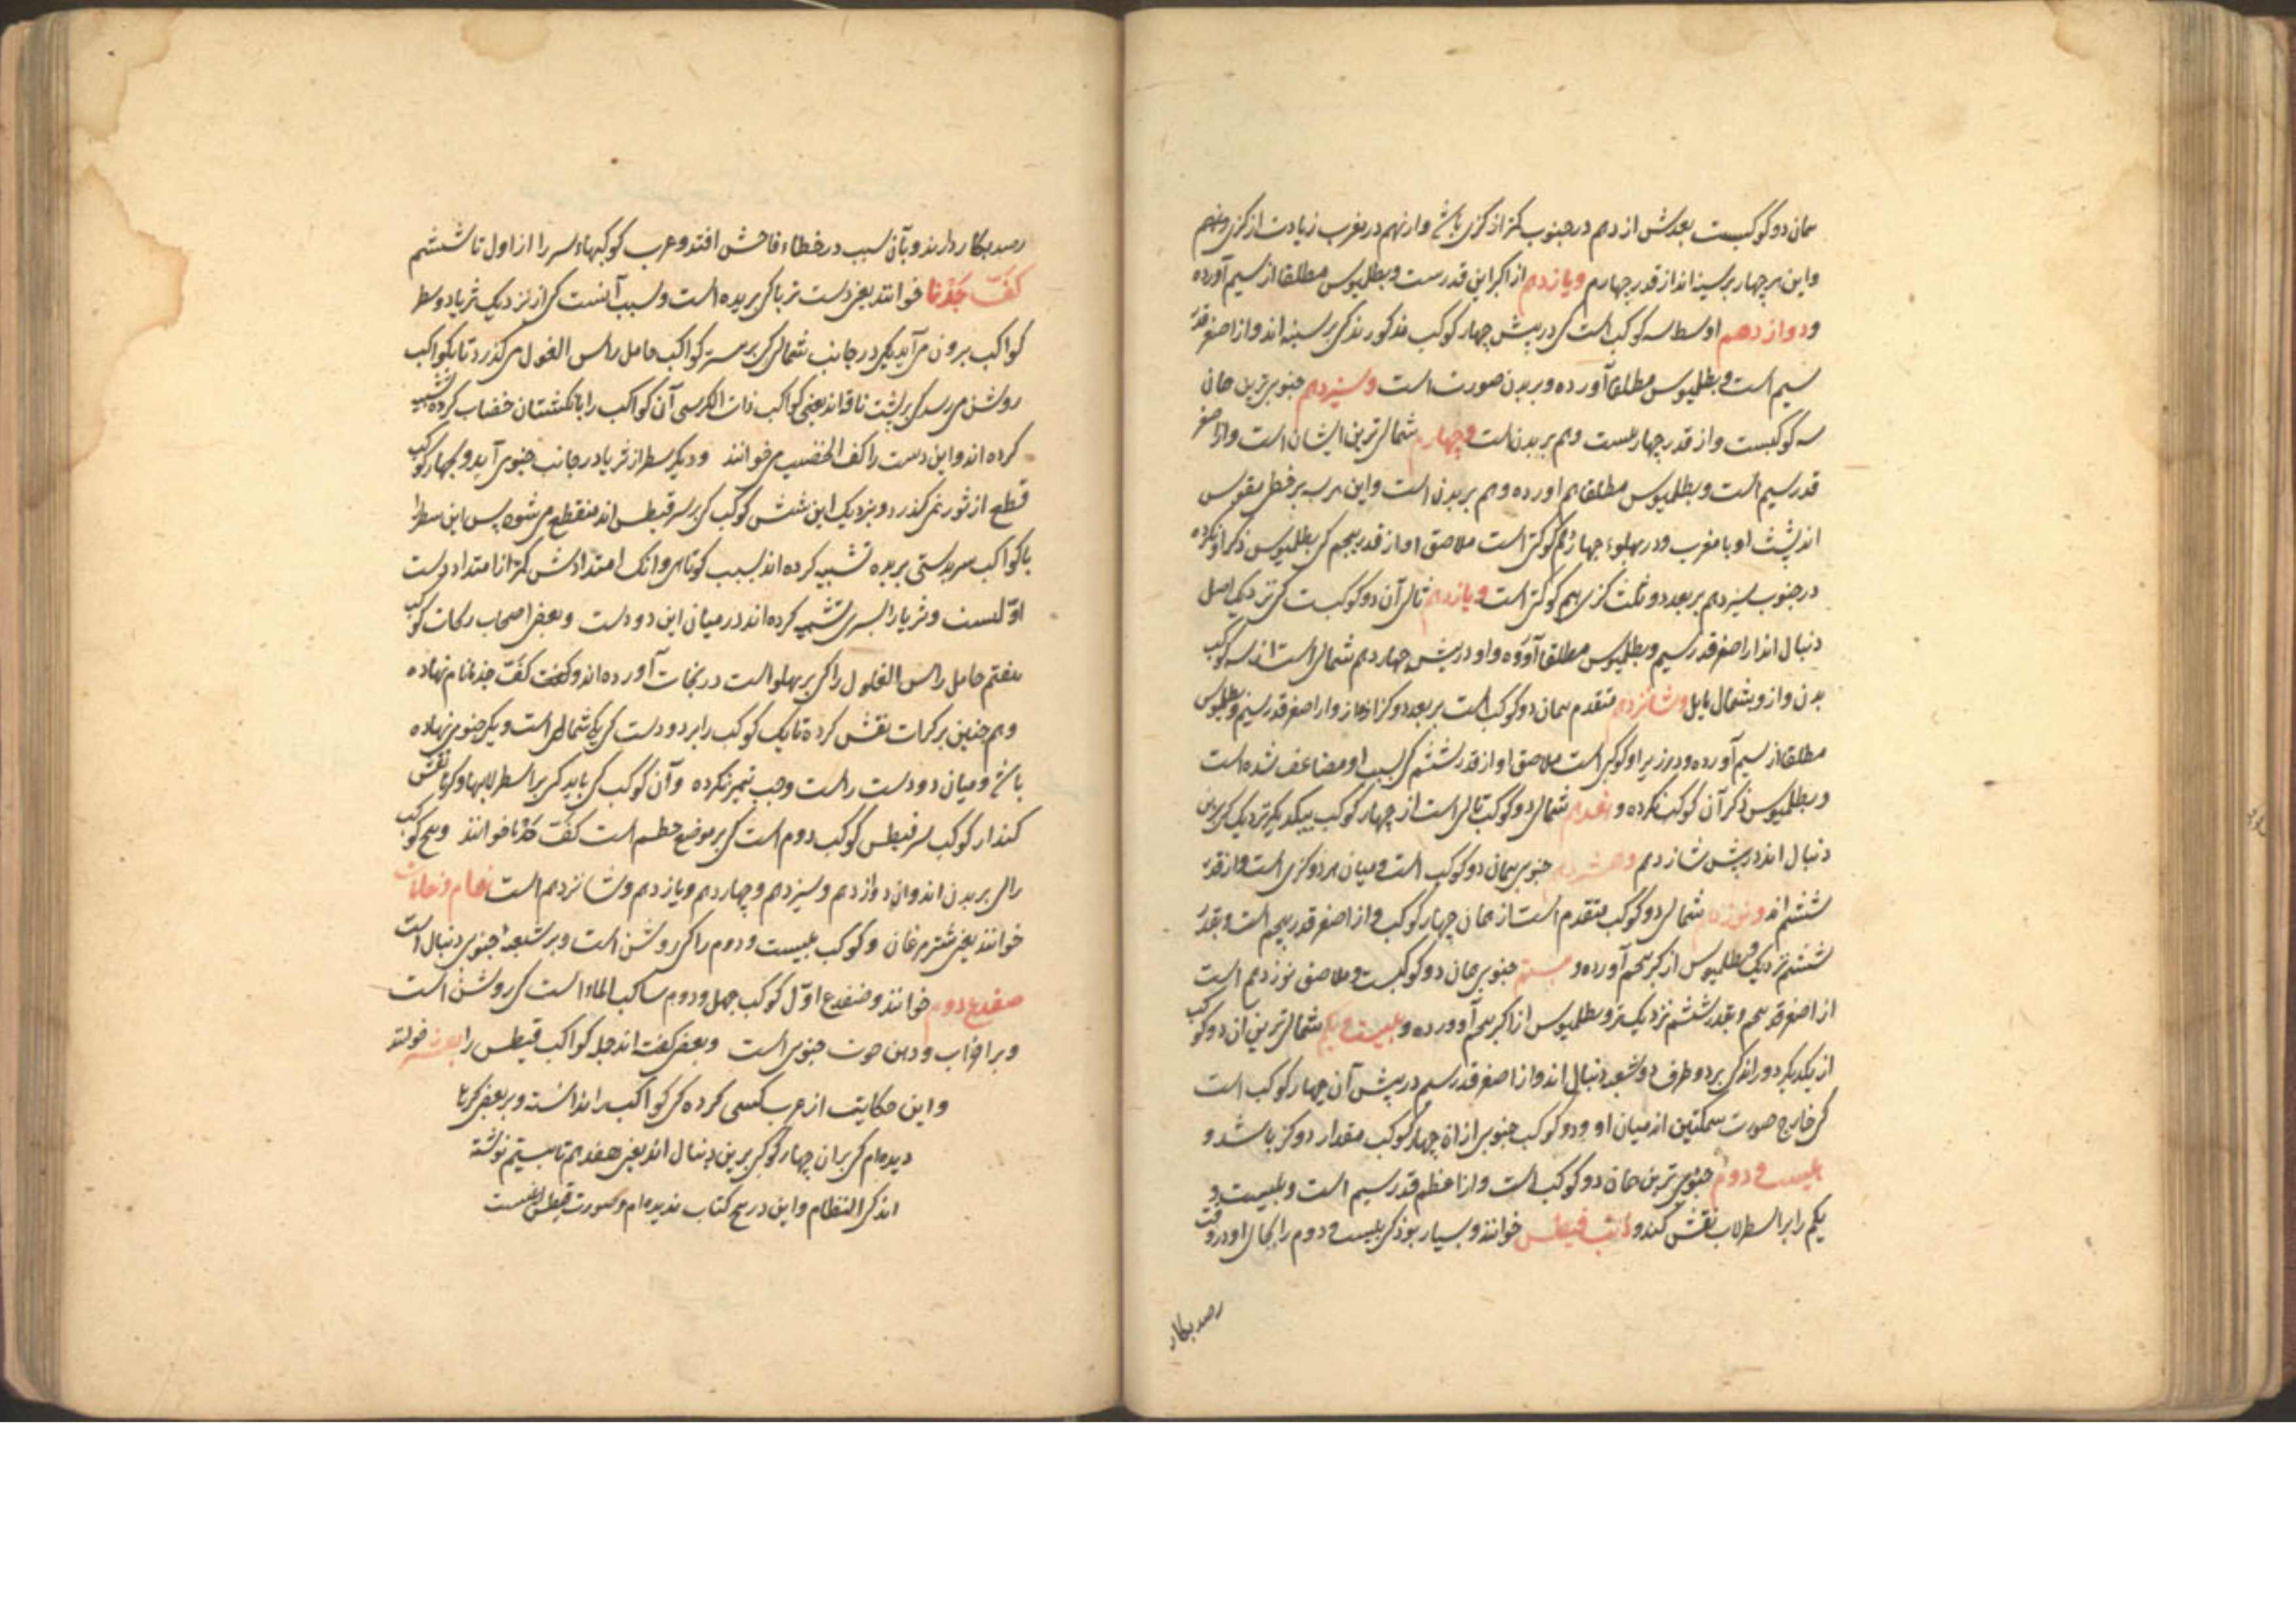 همان دو کوکبست بعدش از دهم در جنوب کمتر از کزی باشد و از نهم در مغرب زیادت از کزی و نهم
و این هر چهار بر سینه اند از قدر چهارم و یازدهم از اکبر این قدرست و بطلمیوس مطلقا از سیم آورده
و دوازدهم اوسط سه کوکب است کی در پیش چهار کوکب مذکورند کی بر سینه اند و از اصغر قدر
سیم است و بطلمیوس مطلقا آورده و بر بدن صورت است و سیزدهم جنوبی‌ترین همان
سه کوکبست و از قدر چهارمست و هم بر بدن است و چهاردهم شمالی‌ترین ایشان است و از اصغر
قدر سیم است و بطلمیوس مطلقا هم آورده و هم بر بدن است و این هر سه بر خطی مقوس
اند پشت او با مغرب و در پهلوء چهاردهم کوکبی است ملاصق او از قدر پنجم کی بطلمیوس ذکر او نکرده
در جنوب سیزدهم بر بعد دو ثلث کزی هم کوکبی است و پانزدهم تالی آن دو کوکبست کی نزدیک اصل
دنبال اند از اصغر قدر سیم و بطلمیوس مطلقا آورده و او در پیش چهاردهم شمالی است از سه کوکب
بدن و از و بشمال مایل و شانزدهم متقدم همان دو کوکب است بر بعد دو کز از و از اصغر قدر سیم و بطلمیوس
مطلقا از سیم آورده و در زیر او کوکبی است ملاصق او از قدر ششم کی بسبب او مضاعف شده است
و بطلمیوس ذکر آن کوکب نکرده و هفدهم شمالی دو کوکب تالی است از چهار کوکب بیکدیکر نزدیک کی بر بدن
دنبال اند در پیش شانزدهم و هشتدهم جنوبی همان دو کوکب است و میان هر دو کزی است و از قدر
ششم اند و نوزدهم شمالی دو کوکب متقدم است از همان چهار کوکب و از اصغر قدر پنجم است و بقدر
ششم نزدیک و بطلمیوس از اکبر پنجم آورده و بیستم جنوبی همان دو کوکبست و ملاصق نوزدهم است
از اصغر قدر پنجم و بقدر ششم نزدیک‌تر و بطلمیوس از اکبر پنجم آورده و بیست و یکم شمالی‌ترین آن دو کوکب
از یکدیگر دور اند کی بر دو طرف دو شعبه دنبال اند و از اصغر قدر سیم در پیش آن چهار کوکب است
کی خارج صورت سمکتین از میان او و دو کوکب جنوبی از آن چهار کوکب مقدار دو کز باشد و
بیست و دوم جنوبی‌ترین همان دو کوکب است و از اعظم قدر سیم است و بیست و
یکم را بر اسطرلاب نقش کنند و ذنب قیطس خوانند و بسیار بود کی بیست و دوم را بجای او در وقت
رصد بکار
رصد بکار دارند و بآن سبب در خطاء فاحش افتند و عرب کوکبهاء سر را از اول تا ششم
کفّ جذما خوانند یعنی دست ثریا کی بریده است و سبب آنست کی از نزدیک ثریا دو سطر
کواکب برون می‌آید یکی در جانب شمالی کی بر سر کواکب حامل راس الغول می‌گذرد تا بکواکب
روشن می‌رسد کی بر پشت ناقه اند یعنی کواکب ذات الکرسی آن کواکب را بانکشتان خضاب کرده تشبیه
کرده اند و این دست را کف الخضیب می‌خوانند و دیکر سطر از ثریا در جانب جنوبی آید و بچهار کوکب
قطع از ثور می‌گذرد و بنزدیک این شش کوکب کی بر سر قیطس اند منقطع می‌شود پس این سطر را
با کواکب سر بدستی بریده تشبیه کرده اند بسبب کوتاهی و انک امتدادش کمتر از امتداد دست
اوّلست و ثریا را بسری تشبیه کرده اند در میان این دو دست و بعضی اصحاب رکات کوکب
هفتم حامل راس الغول را کی بر پهلو است در بنجات آورده اند و کفته کفّ جذما نام نهاده
و هم چنین بر کرات نقش کرده تا یک کوکب را بر دو دست کی یکی شمالی است و یکی جنوبی نهاده
باشد و میان دو دست راست و چپ تمیز نکرده و آن کوکب کی باید کی بر اسطرلابها و کرها نقش
کنند از کوکب سر قیطس کوکب دوم است کی بر موضع خطم است کفّ جذما خوانند و پنج کوکب
را کی بر بدن اند و آن دوازدهم و سیزدهم و چهاردهم و پانزدهم و شانزدهم است نعام و نعامات
خوانند یعنی شترمرغان و کوکب بیست و دوم را کی روشن است و بر شعبهٔ جنوبی دنبال است
ضفدع دوم خوانند و ضفدع اوّل کوکب چهل و دوم ساکب الماء است کی روشن است
و بر آب و دهن حوت جنوبی است و بعضی کفته اند جمله کواکب قیطس را خوانند
و این حکایت از عرب کسی کرده کی کواکب را ندانسته و بر بعضی کرها
دیده‌ام کی بر آن چهار کوکب کی برین دنبال اند یعنی هفدهم تا بیستم نوشته
اند کی النظام و این در هیچ کتاب ندیده‌ام و صورت قیطس اینست